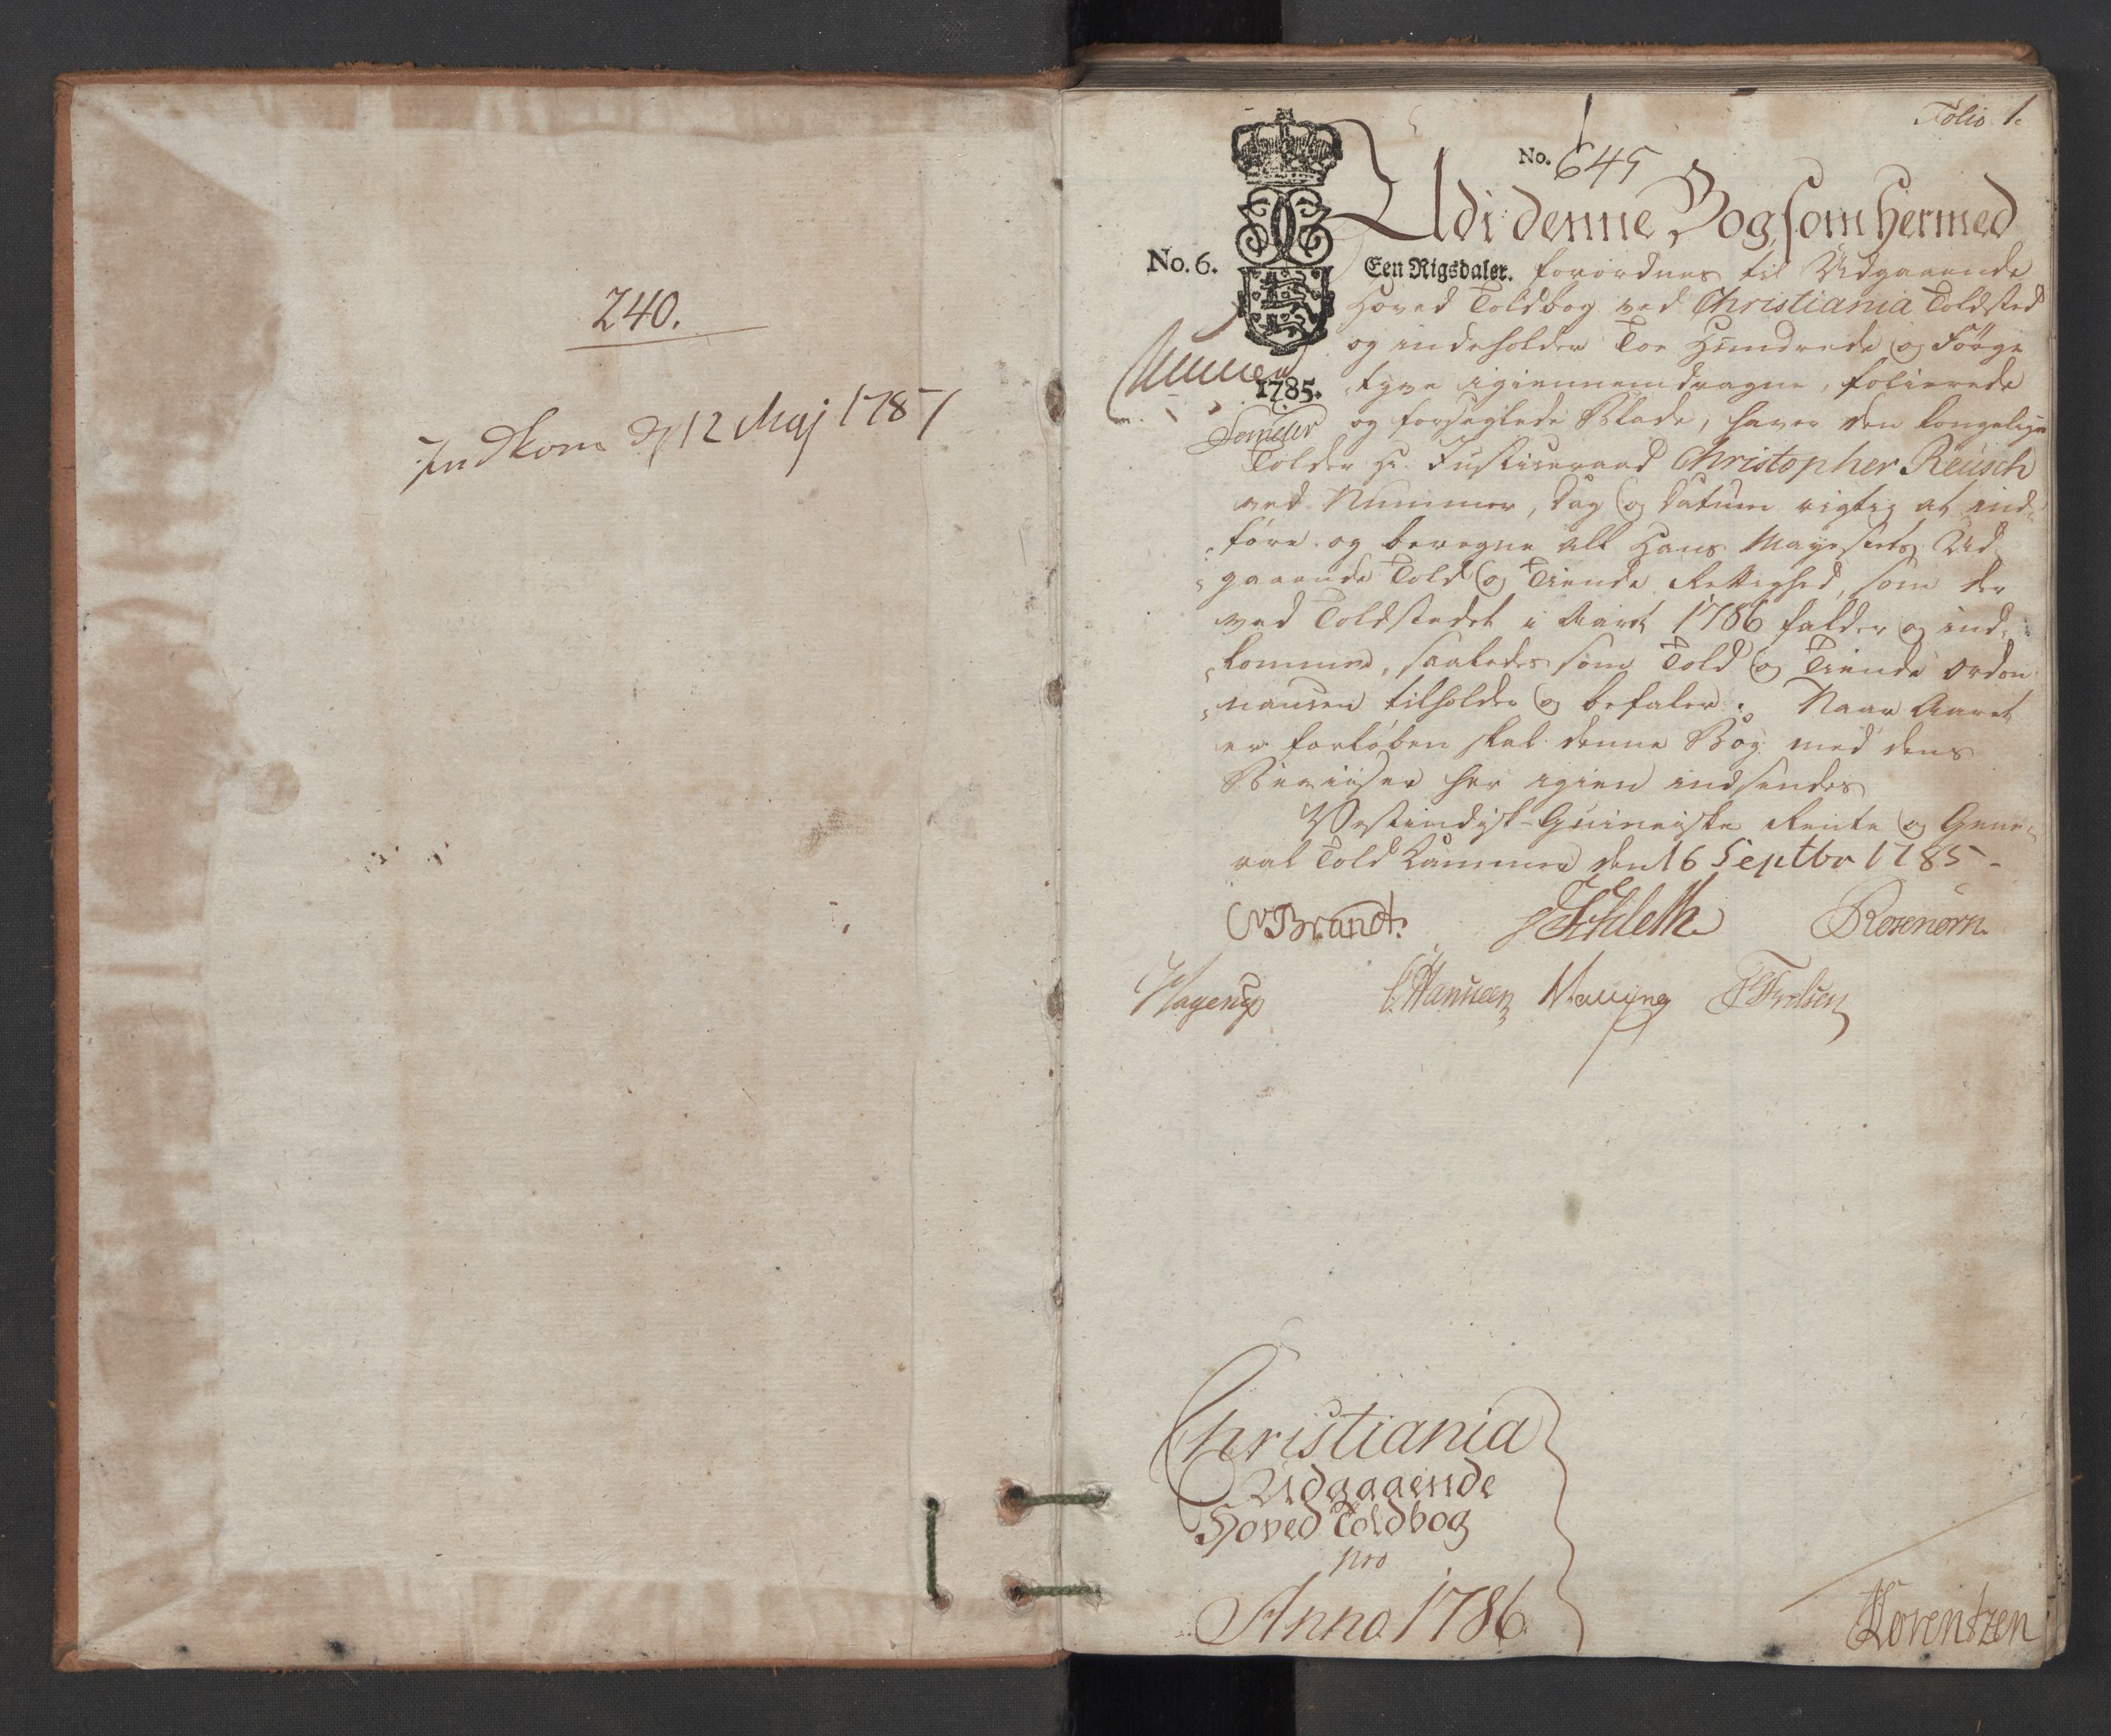 240.
Indkom d 12 Maj 1787
Folio 1.
No. 645
Udi denne Bog, som hermed
No. 6.
Een Rigsdaler. forordnes til Udgaaende
Hoved Toldbog ved Christiania Toldsted
og indeholder Toe Hundrede og Förge
1785. tyve igiennemdragne, folierede
og forseglede Blade, haver den kongelige
Tolder Hr. Justiceraad Christopher Reusch
ved Nummer, Dag og Datum rigtig at ind-
føre og beregne alt Hans Mayestets Ud-
gaaende Told og Tiende Rettighed, som der
ved Toldstedet i Aaret 1786 falder og ind-
kommer, saaledes som Told og Tiende Ordon-
nancen tilholder og befaler. Naar Aaret
er forløben skal denne Bog med dens
Beviiser her igien indsendes
Vestindisk-Guineiske Rente og Gene-
ral Told Kammer den 16 Septbr 1785-
Brandt. Rosenørn.
Hagerup C. Hansen Malling
Christiania
Udgaaende
Hoved Toldbog
pro
Anno 1786
Lorentzen